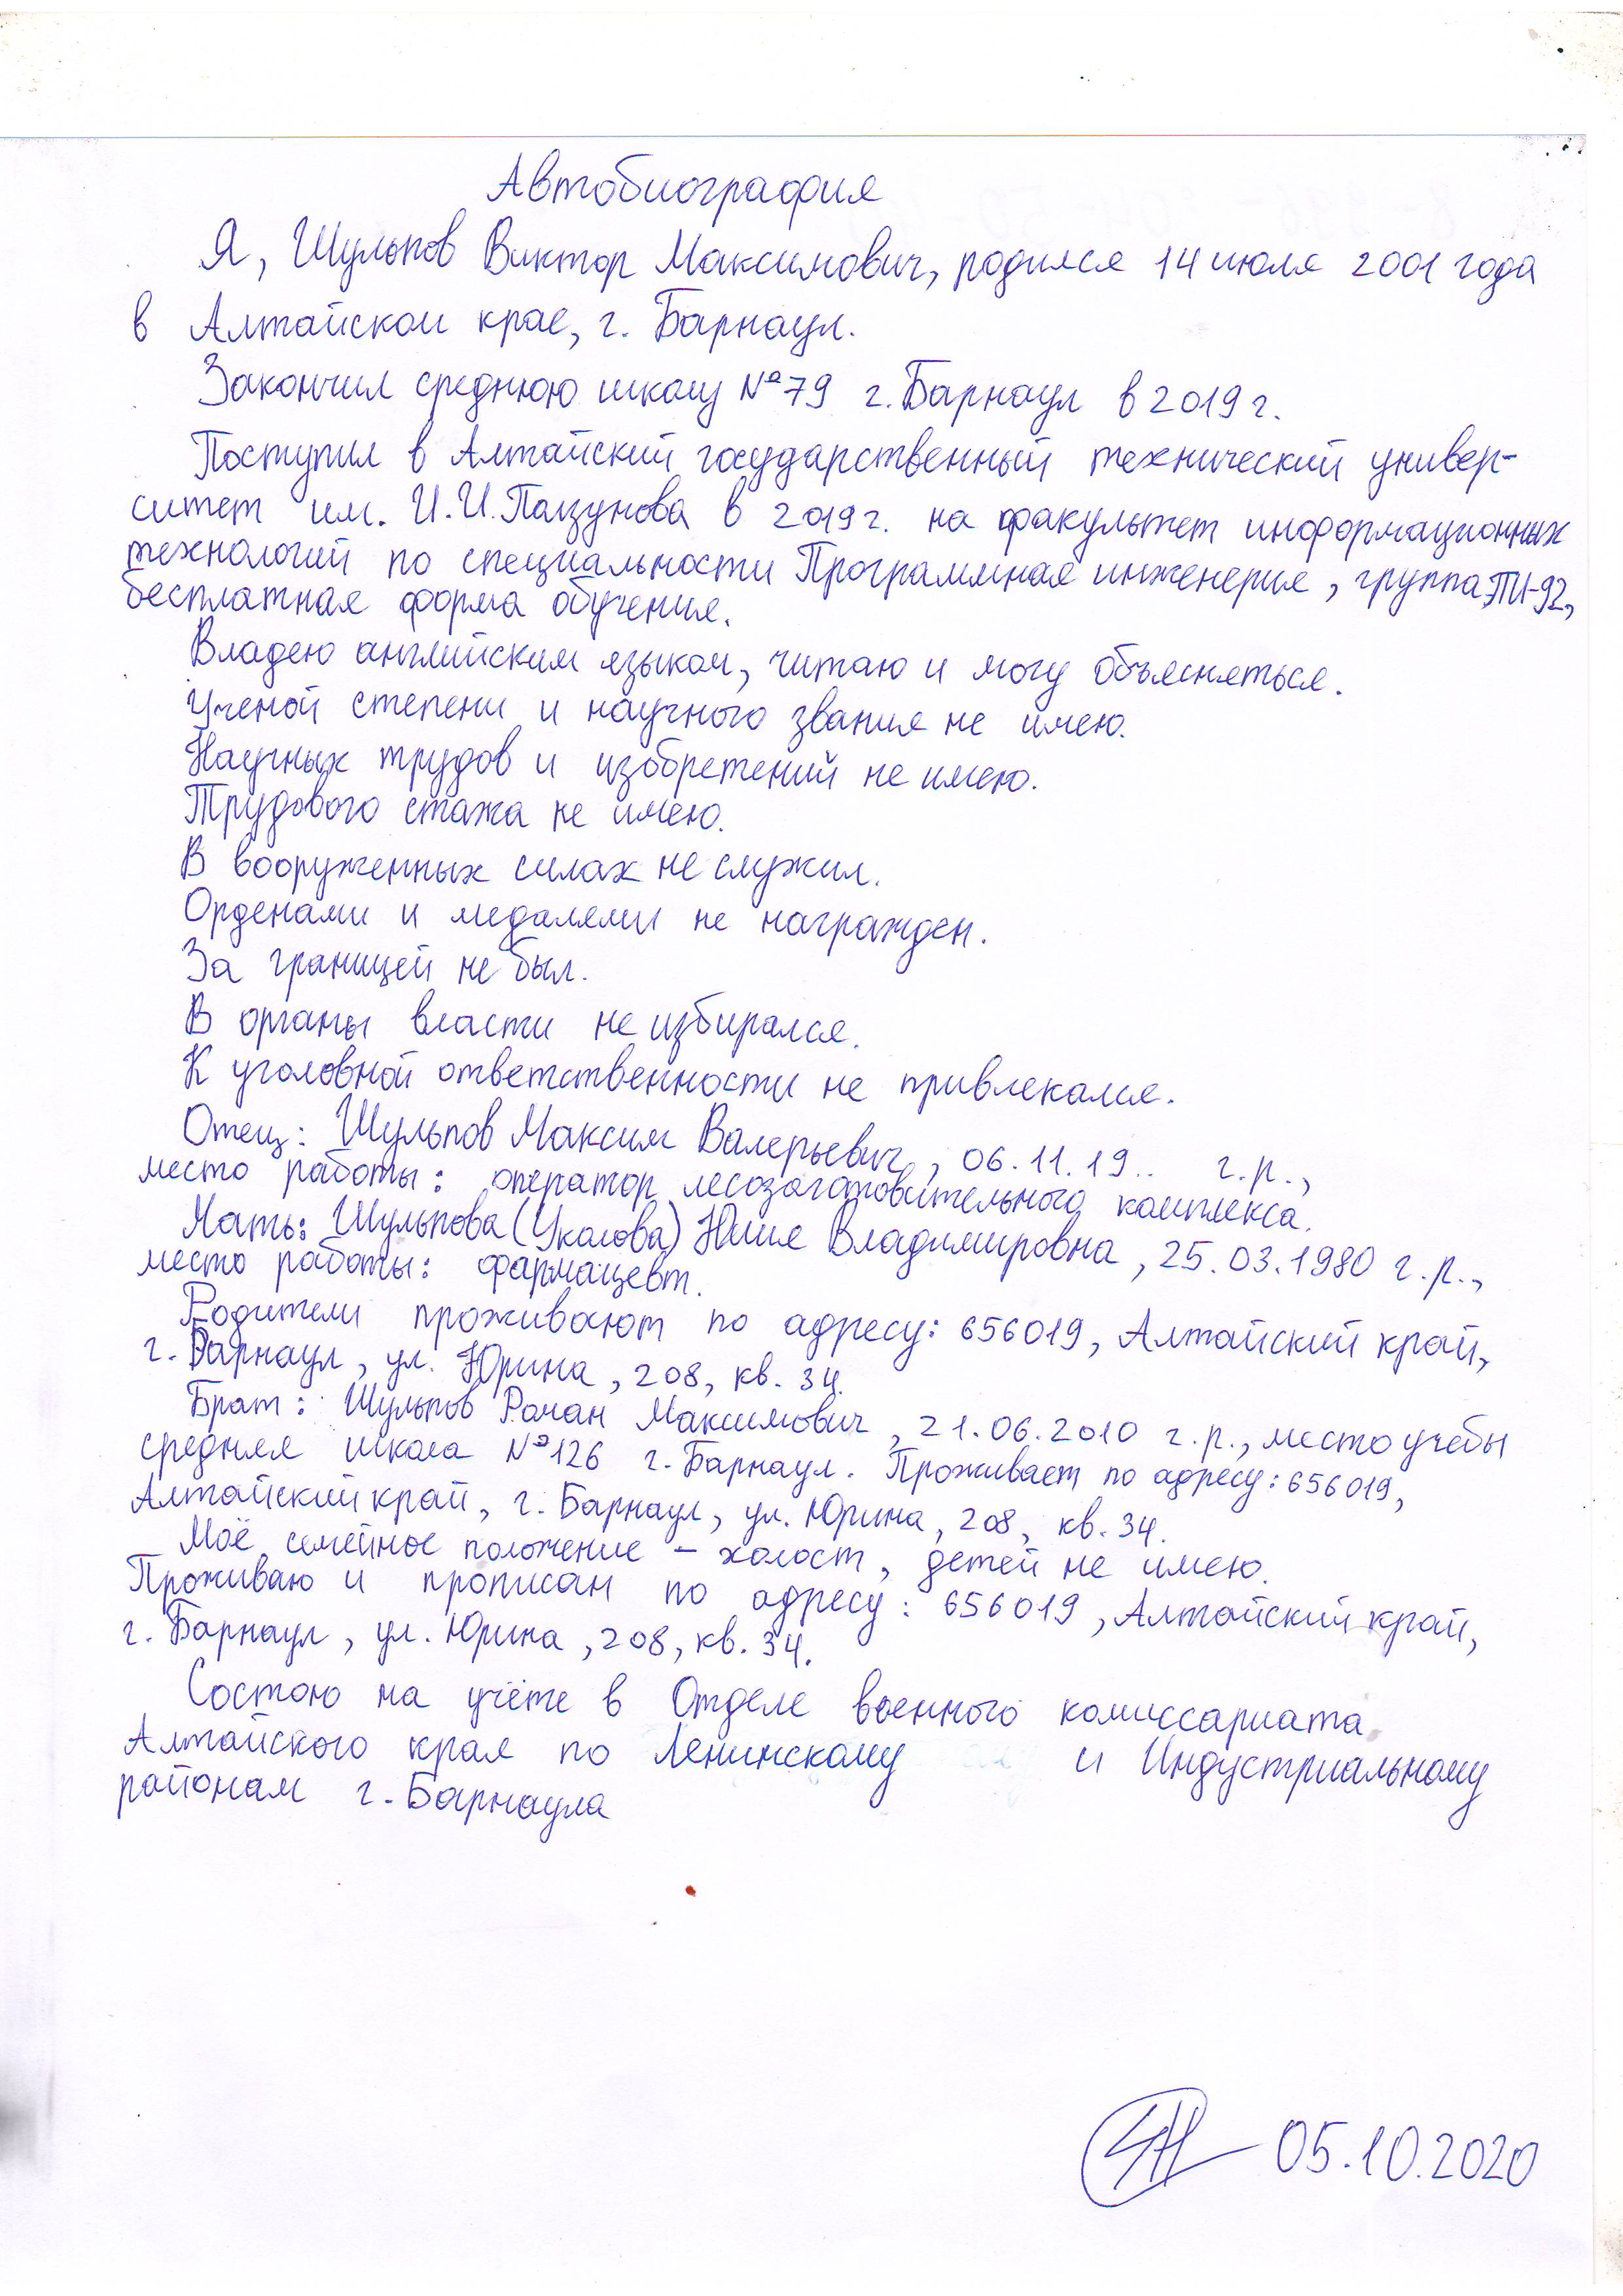 Автобиография
Я, Шульпов Виктор Максимович, родился 14 июля 2001 года
в Алтайском крае, г. Барнаул.
Закончил среднюю школу №79 г. Барнаул в 2019 г.
Поступил в Алтайский государственный технический универ-
ситет им. И.И. Ползунова в 2019 г. на факультет информационных
технологий по специальности Программная инженерия, группа ПИ-92,
бесплатная форма обучения.
Владею английским языком, читаю и могу объясняться.
Ученой степени и научного звания не имею.
Научных трудов и изобретений не имею.
Трудового стажа не имею.
В вооруженных силах не служил.
Орденами и медалями не награжден.
За границей не был.
В органы власти не избирался.
К уголовной ответственности не привлекался.
Отец: Шульпов Максим Валерьевич, 06.11.19.. г.р.,
место работы: оператор лесозаготовительного комплекса.
Мать: Шульпова (Уколова) Юлия Владимировна, 25.03.1980 г.р.,
место работы: фармацевт.
Родители проживают по адресу: 656019, Алтайский край,
г. Барнаул, ул. Юрина, 208, кв. 34.
Брат: Шульпов Роман Максимович, 21.06.2010 г.р., место учебы
средняя школа №126 г. Барнаул. Проживает по адресу: 656019,
Алтайский край, г. Барнаул, ул. Юрина, 208, кв. 34.
Моё семейное положение – холост, детей не имею.
Проживаю и прописан по адресу: 656019, Алтайский край,
г. Барнаул, ул. Юрина, 208, кв. 34.
Состою на учёте в Отделе военного комиссариата
Алтайского края по Ленинскому и Индустриальному
районам г. Барнаула
05.10.2020